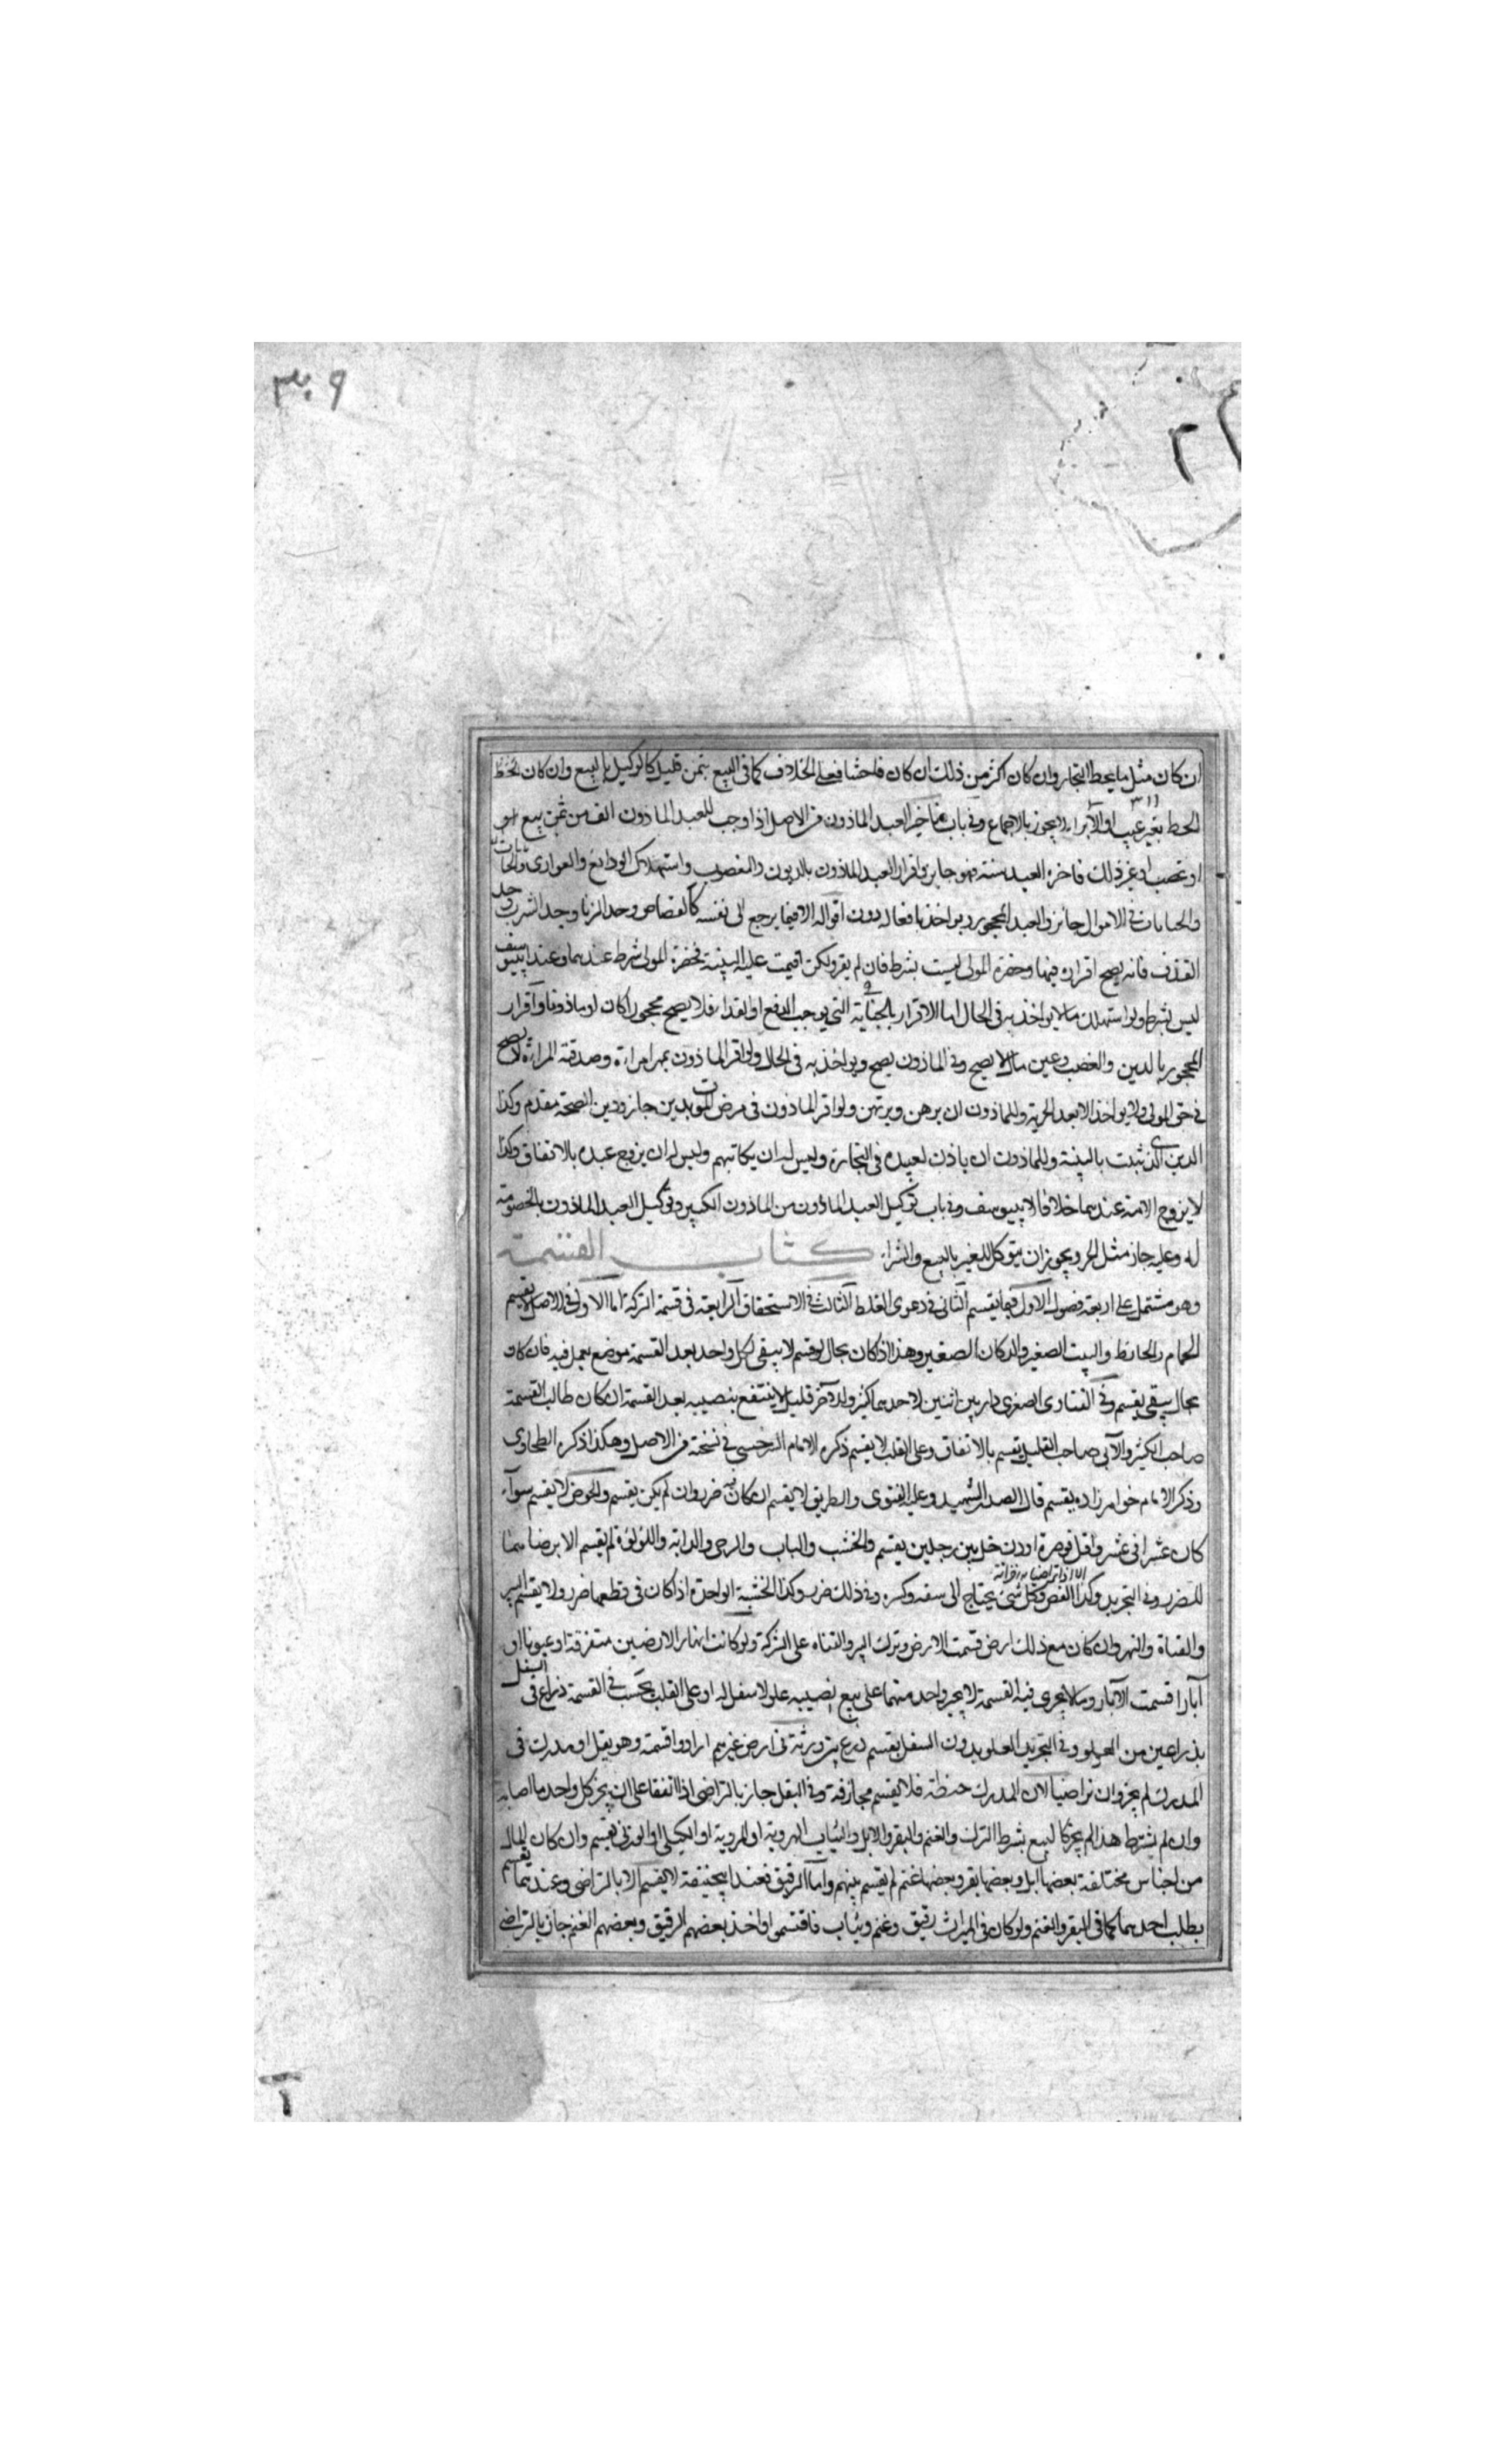 ٣٠٩
ان كان مثل ما يحط التجار وان كان اكثر من ذلك ان كان فاحشا فعلى الخلاف كما فى البيع بثمن قليل كالوكيل بالبيع وان كان
الحط بغير عيب او الابراء لا يجوز بالاجماع وفى باب تاخير العبد الماذون من الاصل اذا وجب للعبد الماذون الف من ثمن بيع
او غصب او غير ذلك فاخره العبد سنة فهو جايز واقرار العبد الماذون بالديون والمغصوب واستهلاك الودائع والعوارى
فى الاموال جائز والعبد المحجور يواخذ بافعاله دون اقواله الا فيما يرجع الى نفسه كالقصاص وحد الزنا وحد الشرب وحد
القذف فانه يصح اقراره فيها وحضرة المولى ليست بشرط فان لم يقر ولكن اقيمت عليه البينة فحضرة المولى شرط عندهما وعند ابييوسف
ليس بشرط ولو استهلك مالا يواخذ به فى الحال اما الاقرار بالجناية التى يوجب الدفع او الفداء فلا يصح محجورا كان او ماذونا واقرار
المحجور بالدين والغصب وعين مال لا يصح وفى الماذون يصح ويواخذ به فى الحال ولو اقر الماذون بمهر امراة وصدقته المراة لا يصح
فى حق المولى ولا يواخذ الا بعد الحرية وللماذون ان يرهن ويرتهن ولو اقر الماذون فى مرض الموت بدين جاز ودين الصحة مقدم وكذا
الدين الذى ثبت بالبينة وللماذون ان ياذن لعبيده فى التجارة وليس له ان يكاتبهم وليس له ان يزوج عبده بالاتفاق وكذا
لا يزوج الامة عندهما خلافا لابييوسف وفى باب توكيل العبد الماذون من الماذون الكبير وتوكيل العبد الماذون بالخصومة
له وعليه جاز مثل الحر ويجوز ان يتوكل للغير بالبيع والشراء كتاب القسمة
وهو مشتمل على اربعة فصول الاول فيما يقسم الثانى فى دعوى الغلط الثالث فى الاستحقاق الرابعة فى قسمة التركة اما الاول فى الاصل لا يقسم
الحمام والحائط والبيت الصغير والدكان الصغير وهذا اذا كان بحال لو قسم لا يبقى لكل واحد بعد القسمة موضع يعمل فيه فان كان
بحال يبقى يقسم وفى الفتاوى الصغرى دار بين اثنين لاحدهما كثير والاخر قليل لا ينتفع بنصيبه بعد القسمة ان كان طالب القسمة
صاحب الكثير والآبى صاحب القليل يقسم بالاتفاق وعلى القلب لا يقسم ذكره الامام السرخسى فى نسخته من الاصل وهكذا ذكره الطحاوى
وذكر الامام خواهر زاده يقسم قال الصدر الشهيد وعليه الفتوى والطريق لا يقسم ان كان فيه ضرر وان لم يكن يقسم والحوض لا يقسم سواء
كان عشرا فى عشر او اقل قوصرة او دن خل بين رجلين يقسم والخشب والباب والرحى والدابة واللؤلؤة لم يقسم الا برضاهما
الا اذا تراضيا
للضرر وفى التجريد وكذا الفص وكل شئ يحتاج الى شقه وكسره وفى ذلك ضرر وكذا الخشبة الواحدة اذا كان فى قطعها ضرر ولا يقسم البير
والقناة والنهر وان كان مع ذلك ارض قسمت الارض وترك البير والقناة على الشركة ولو كانت انهار الارضين متفرقة او عيونا او
آبارا قسمت الآبار وما لا يجرى فيه القسمة لا يجبر واحد منهما على بيع نصيبه علو لا سفل له او على القلب يحتسب فى القسمة ذراع فى السفل
بذراعين من العلو وفى التجريد العلو بدون السفل يقسم زرع بين ورثة فى ارض غيرهم ارادوا قسمته وهو بقل او مدرك فى
المدرك لم يجز وان تراضيا لان المدرك حنطة فلا يقسم مجازفة وفى البقل جاز بالتراضى اذا اتفقا على ان يجز كل واحد ما اصابه
وان لم يشترط هذا لم يجز كالبيع بشرط الترك والغنم والبقر والابل والثياب الهروية او المروية او الكيلى او الوزنى يقسم وان كان المال
من اجناس مختلفة بعضها ابل وبعضها بقر وبعضها غنم لم يقسم بينهم واما الرقيق فعند ابيحنيفة لا يقسم الا بالتراضى وعندهما يقسم
بطلب احدهما كما فى البقر والغنم ولو كان فى الميراث رقيق وغنم وثياب فاقتسموا واخذ بعضهم الرقيق وبعضهم الغنم جاز بالتراضى